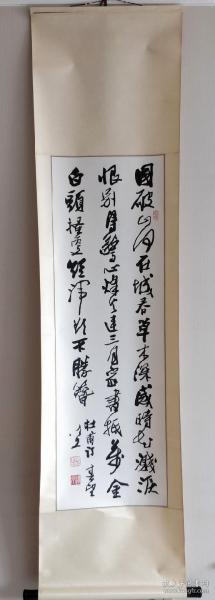 國破山河在城春草木深感時花濺淚
恨别鳥驚心烽火連三月家書抵萬金
白頭搔更短渾欲不勝簪
杜甫詩 春望